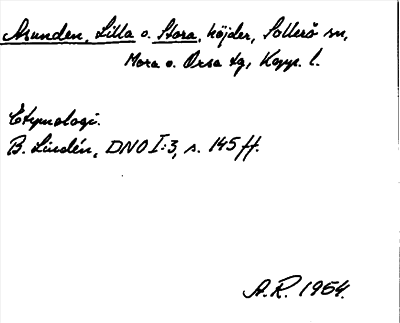 Asunden, Lilla o. Stora, höjder, Sollerö sn,
Mora o. Orsa tg, Kopp. l.
Etymologi.
B. Lindén, DNO I:3, s. 145 ff.
A.R. 1964.